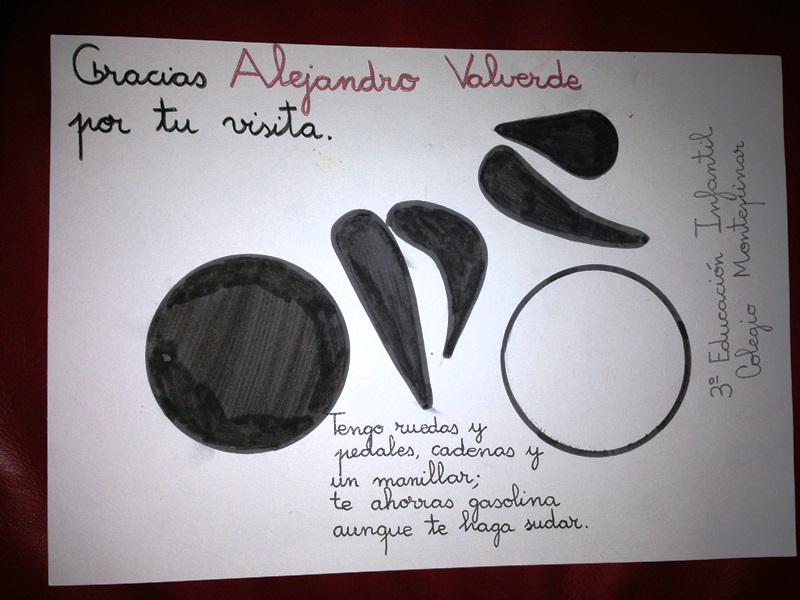 Gracias Alejandro Valverde
por tu visita.
Tengo ruedas y
pedales, cadenas y
un manillar;
te ahorras gasolina
aunque te haga sudar.
3º Educación Infantil
Colegio Montepinar